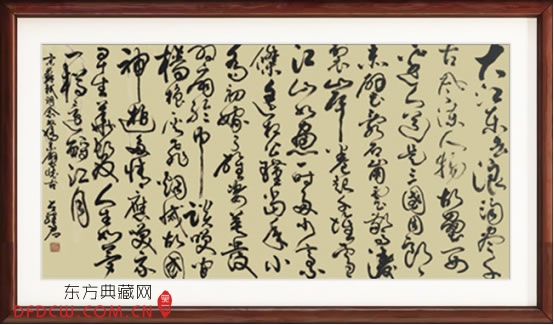 大江东去浪淘尽千
古风流人物故垒西
边人道是三国周郎
赤壁乱石崩云惊涛
裂岸卷起千堆雪
江山如画一时多少豪
杰遥想公瑾当年小
乔初嫁了雄姿英发
羽扇纶巾谈笑间
樯橹灰飞烟灭故国
神游多情应笑我
早生华发人生如梦
一樽还酹江月
苏轼词念奴娇赤壁怀古
东方典藏网
DFDCW.COM.CN